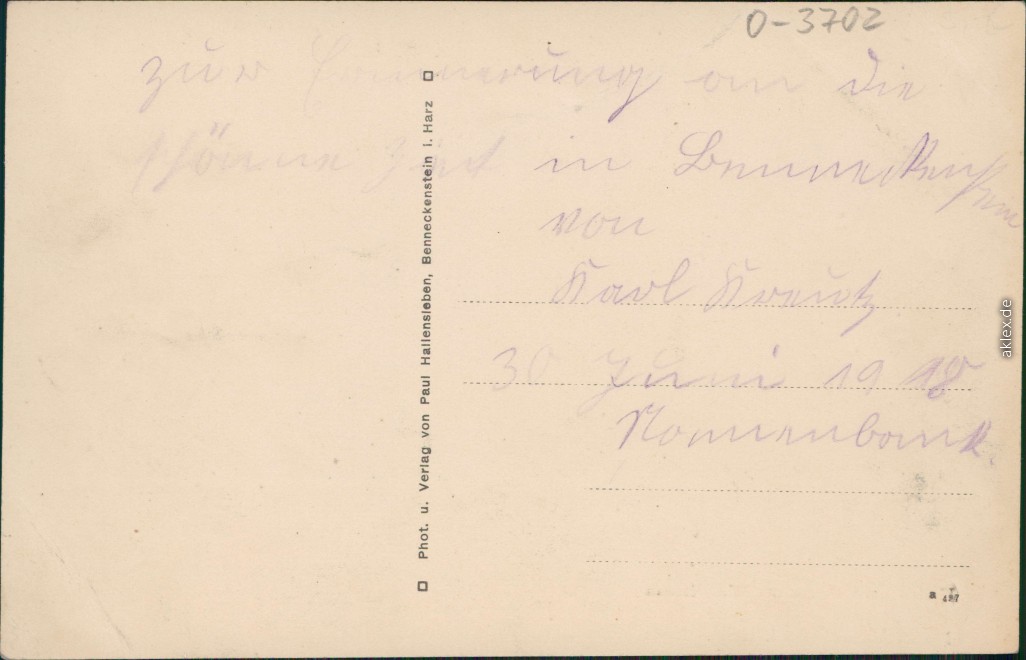 0-3702
zur Erinnerung an die
schöne Zeit in Benneckenstein
von
Karl Kreutz
30 Juni 1918
Nonnenbank.
Phot. u. Verlag von Paul Hallensleben, Benneckenstein i. Harz
a 487
aklex.de